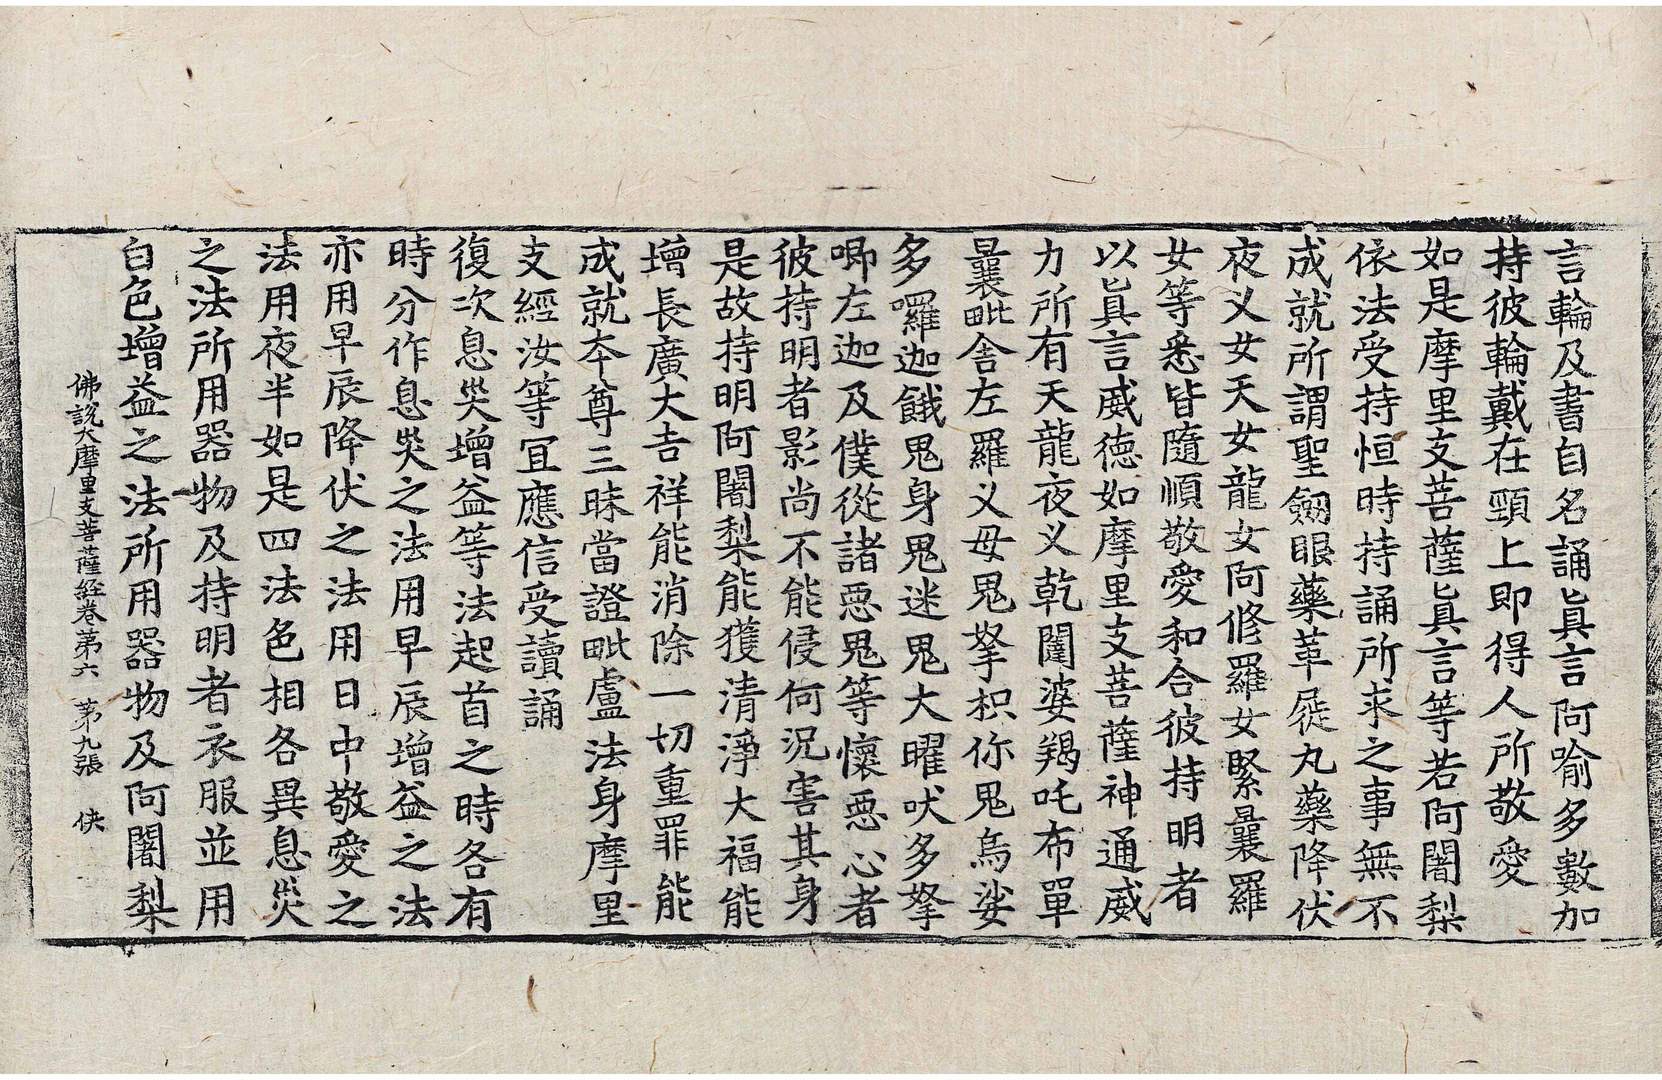 言輪及書自名誦眞言阿喻多數加
持彼輪戴在頸上即得人所敬愛
如是摩里支菩薩眞言等若阿闍梨
依法受持恒時持誦所求之事無不
成就所謂聖劔眼藥革屣丸藥降伏
夜叉女天女龍女阿修羅女緊曩羅
女等悉皆隨順敬愛和合彼持明者
以眞言威德如摩里支菩薩神通威
力所有天龍夜叉乾闥婆羯吒布單
曩毗舍左羅叉母鬼拏枳你鬼烏娑
多囉迦餓鬼身鬼迷鬼大曜吠多拏
唧左迦及僕從諸惡鬼等懷惡心者
彼持明者影尚不能侵何況害其身
是故持明阿闍梨能獲清淨大福能
增長廣大吉祥能消除一切重罪能
成就本尊三昧當證毗盧法身摩里
支經汝等冝應信受讀誦
復次息災增益等法起首之時各有
時分作息災之法用早辰增益之法
亦用早辰降伏之法用日中敬愛之
法用夜半如是四法色相各異息災
之法所用器物及持明者衣服並用
白色增益之法所用器物及阿闍梨
佛說大摩里支菩薩経卷第六　苐九張　俠